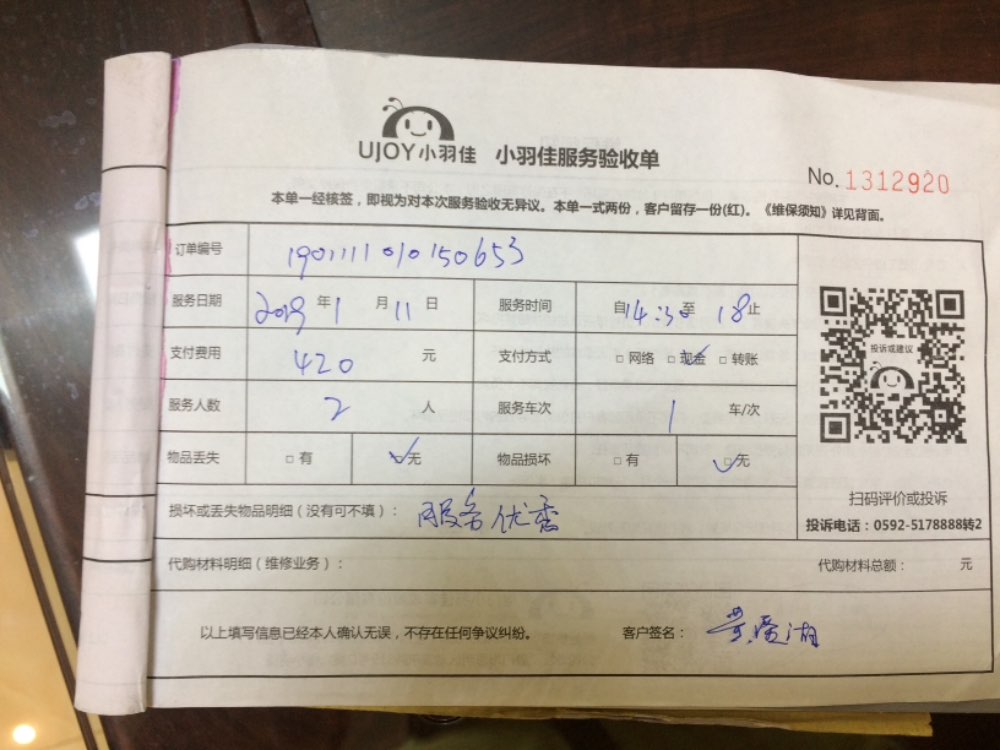 UJOY小羽佳 小羽佳服务验收单
No.1312920
本单一经核签，即视为对本次服务验收无异议。本单一式两份，客户留存一份(红)。《维保须知》详见背面。
订单编号 1901111010150653
服务日期 2019年1月11日 服务时间 自14:30至18止
支付费用 420元 支付方式 □网络 □现金 □转账
服务人数 2人 服务车次 1车/次
物品丢失 □有 □无 物品损坏 □有 □无
投诉或建议
扫码评价或投诉
投诉电话：0592-5178888转2
损坏或丢失物品明细（没有可不填）： 服务优秀
代购材料明细（维修业务）： 代购材料总额： 元
以上填写信息已经本人确认无误，不存在任何争议纠纷。 客户签名：